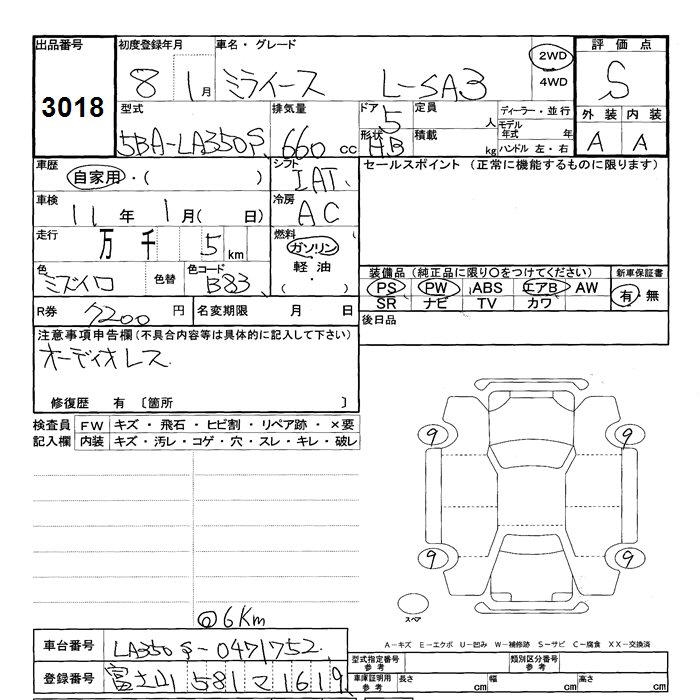 出品番号 初度登録年月 車名・グレード 評価点
3018 8 1月 ミライース L-SA3 2WD 4WD S
型式 排気量 ドア 5 定員 人 ディーラー・並行 外装 内装
5BA-LA350S 660 cc 形状 H.B 積載 kg モデル年式 年 ハンドル 左・右 A A
車歴 自家用・( ) シフト IAT セールスポイント (正常に機能するものに限ります)
車検 11年 1月( 日) 冷房 AC
走行 万 千 5 km 燃料 ガソリン・軽油・( )
色 ミズイロ 色替 色コード B83 装備品 (純正品に限り○をつけてください) 新車保証書
PS PW ABS エアB AW 有・無
SR ナビ TV カワ
R券 7200 円 名変期限 月 日 後日品
注意事項申告欄 (不具合内容等は具体的に記入して下さい)
オーディオレス
修復歴 有 〔箇所 〕
検査員 FW キズ・飛石・ヒビ割・リペア跡・×要
記入欄 内装 キズ・汚レ・コゲ・穴・スレ・キレ・破レ
9 9
9 9
スペア
◎6Km
A-キズ E-エクボ U-凹み W-補修跡 S-サビ C-腐食 XX-交換済
車台番号 LA350S-0471752 型式指定番号 参考 類別区分番号 参考
登録番号 富士山 581 マ 1619 車庫証明用 参考 長さ cm 幅 cm 高さ cm